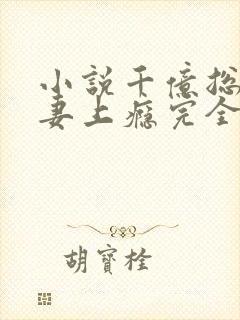 小說千億總
妻上癮完全
胡寶栓